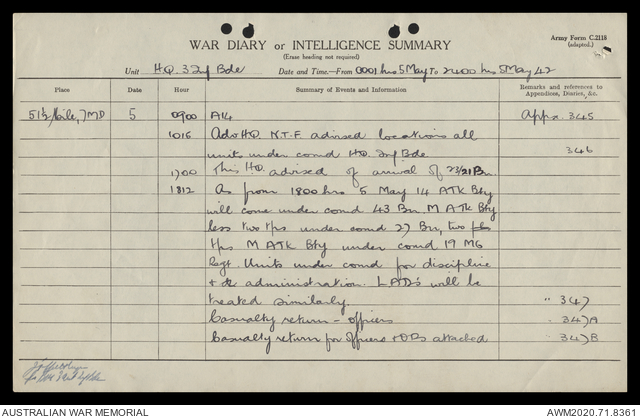 Army Form C.2118
(adapted.)
WAR DIARY or INTELLIGENCE SUMMARY
(Erase heading not required)
Unit H.Q. 3 Inf Bde Date and Time.—From 0001 hrs 5 May To 2400 hrs 5 May 42
Place Date Hour Summary of Events and Information Remarks and references to Appendices, Diaries, &c.
51½ Mile, 7MD 5 0900 A14 Appx. 345
1016 Adv HQ. N.T.F. advised locations all
units under comd HQ. Inf Bde 346
1700 This HQ. advised of arrival of 23/21 Bn.
1812 As from 1800 hrs 5 May 14 ATK Bty
will come under comd 43 Bn. M ATK Bty
less two tps under comd 27 Bn, two
tps M ATK Bty under comd 19 MG
Regt. Units under comd for discipline
+ administration. LADs will be
treated similarly. " 347
Casualty return - officers " 347A
Casualty return for Officers + ORs attached 347B
AUSTRALIAN WAR MEMORIAL
AWM2020.71.8361